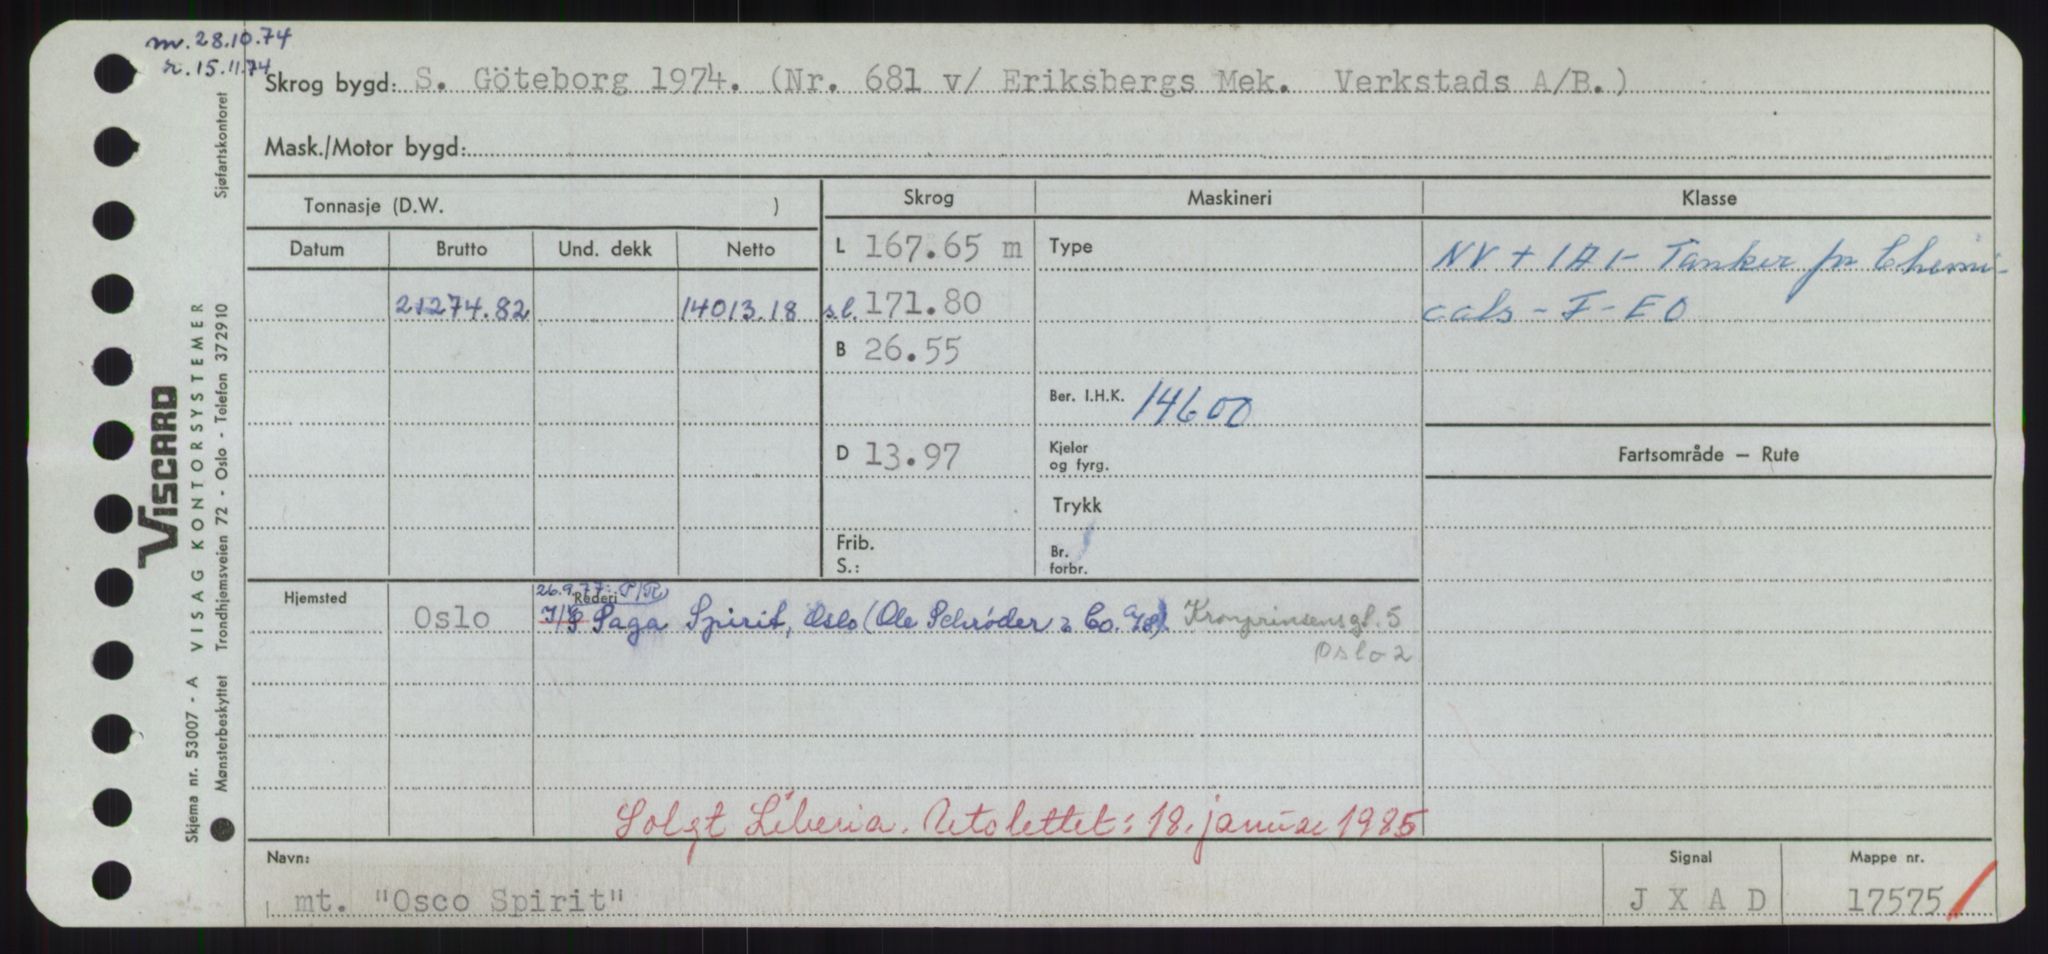 m. 28.10.74
r. 15.11.74
Skrog bygd: S. Göteborg 1974. (Nr. 681 v/ Eriksbergs Mek. Verkstads A/B.)
Mask./Motor bygd:
Tonnasje (D.W. )
Skrog
Maskineri
Klasse
Datum Brutto Und. dekk Netto
L 167.65 m
Type
NV + 1A1 - Tanker for Chemi-
21274.82 14013.18
s.l. 171.80
cals - F - EO
B 26.55
Ber. I.H.K. 14600
D 13.97
Kjeler
og fyrg.
Fartsområde — Rute
Trykk
Frib.
S.:
Br.
forbr.
Hjemsted
26.9.77: P/R
Rederi
Oslo
I/S Saga Spirit, Oslo (Ole Schrøder & Co. A/S) Kronprinsensgt. 5
Oslo 2
Solgt Liberia. Utslettet: 18. januar 1985
Navn:
Signal
Mappe nr.
mt. "Osco Spirit"
J X A D
17575
Skjema nr. 53007 - A VISAG KONTORSYSTEMER
VISCARD
Mønsterbeskyttet Trondhjemsveien 72 - Oslo - Telefon 372910 Sjøfartskontoret